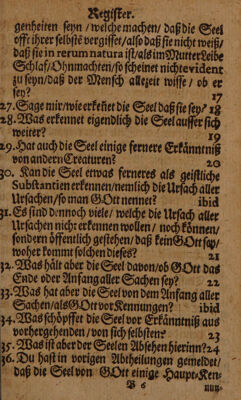 Register.
genheiten seyn / welche machen / daß die Seel
offt ihrer selbste vergisset / also daß sie nicht weiß /
daß sie in rerum natura ist / als im Mutter Leibe
Schlaf / Ohnmachten / so scheinet nichts evident
zu seyn / daß der Mensch allezeit wisse / ob er
sey? 17
27. Sage mir / wie erkeñet die Seel daß sie sey? 18
28. Was erkennet eigendlich die Seel ausser sich
weiter? 19
29. Hat auch die Seel einige fernere Erkänntniß
von andern Creaturen? 20
30. Kan die Seel etwas ferneres als geistliche
Substantien erkennen / nemlich die Ursach aller
Ursachen / so man GOtt nennet? ibid
31. Es sind dennoch viele / welche die Ursach aller
Ursachen nicht erkennen wollen / noch können /
sondern öffentlich gestehen / daß kein GOtt sey /
woher kommt solchen dieses? 21
32. Was hält aber die Seel davon / ob GOtt das
Ende oder Anfang aller Sachen sey? 22
33. Was hat aber die Seel von dem Anfang aller
Sachen / als GOtt vor Kennungen? ibid
34. Was schöpffet die Seel vor Erkäntniß aus
vorhergehenden / von sich selbsten? 23
35. Was ist aber der Seelen Absehen hierinn? 24
36. Du hast in vorigen Abtheilungen gemeldet /
daß die Seel von GOtt einige Haupt-Ken-
B 6 nun-